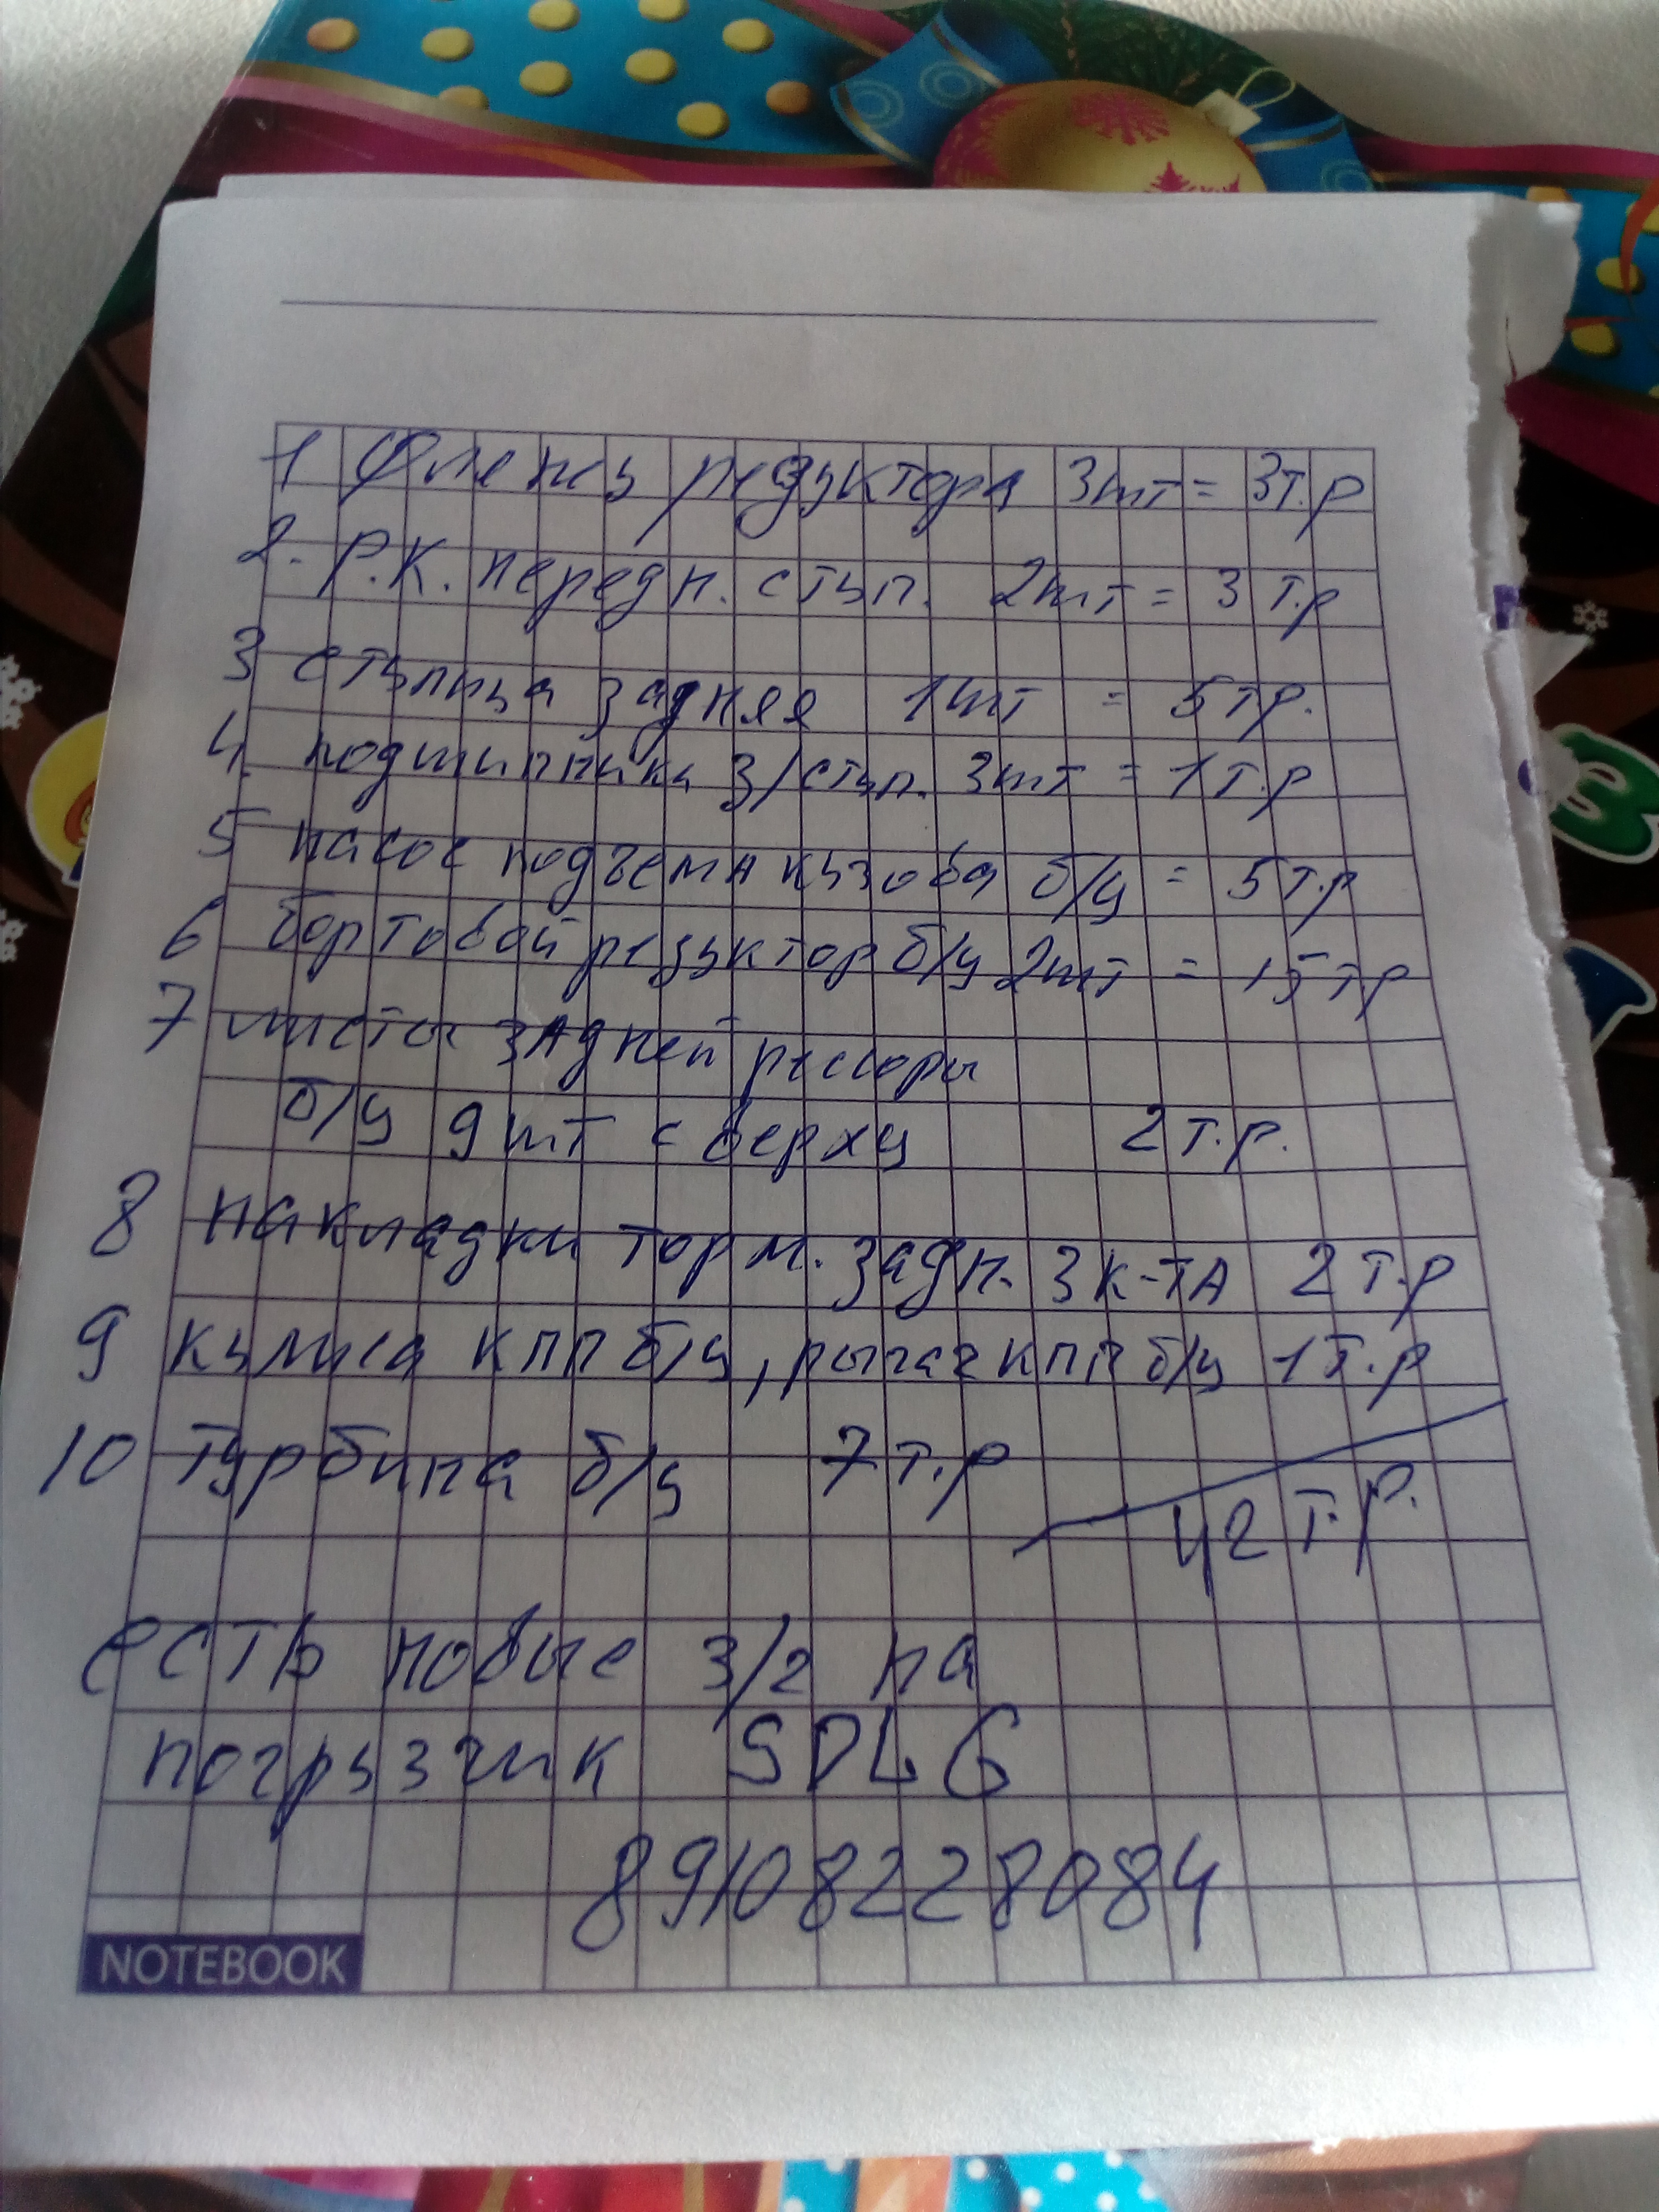 1 Фленец редуктора 3шт = 3т.р
2. Р.К. передн. ступ. 2шт = 3 т.р
3 ступица задняя 1шт = 5тр.
4. подшипники з/ступ. 3шт = 1т.р
5 насос подъема кузова б/у = 5т.р
6 бортовой редуктор б/у 2шт = 15тр
7 листы задней рессоры
б/у 9шт с верху 2т.р.
8 накладки торм. задн. 3к-та 2т.р
9 кулиса кпп б/у, рычаг кпп б/у 1т.р
10 турбина б/у 7т.р
42 т.р.
есть новые з/ч на
погрузчик SDLG
89108228084
NOTEBOOK